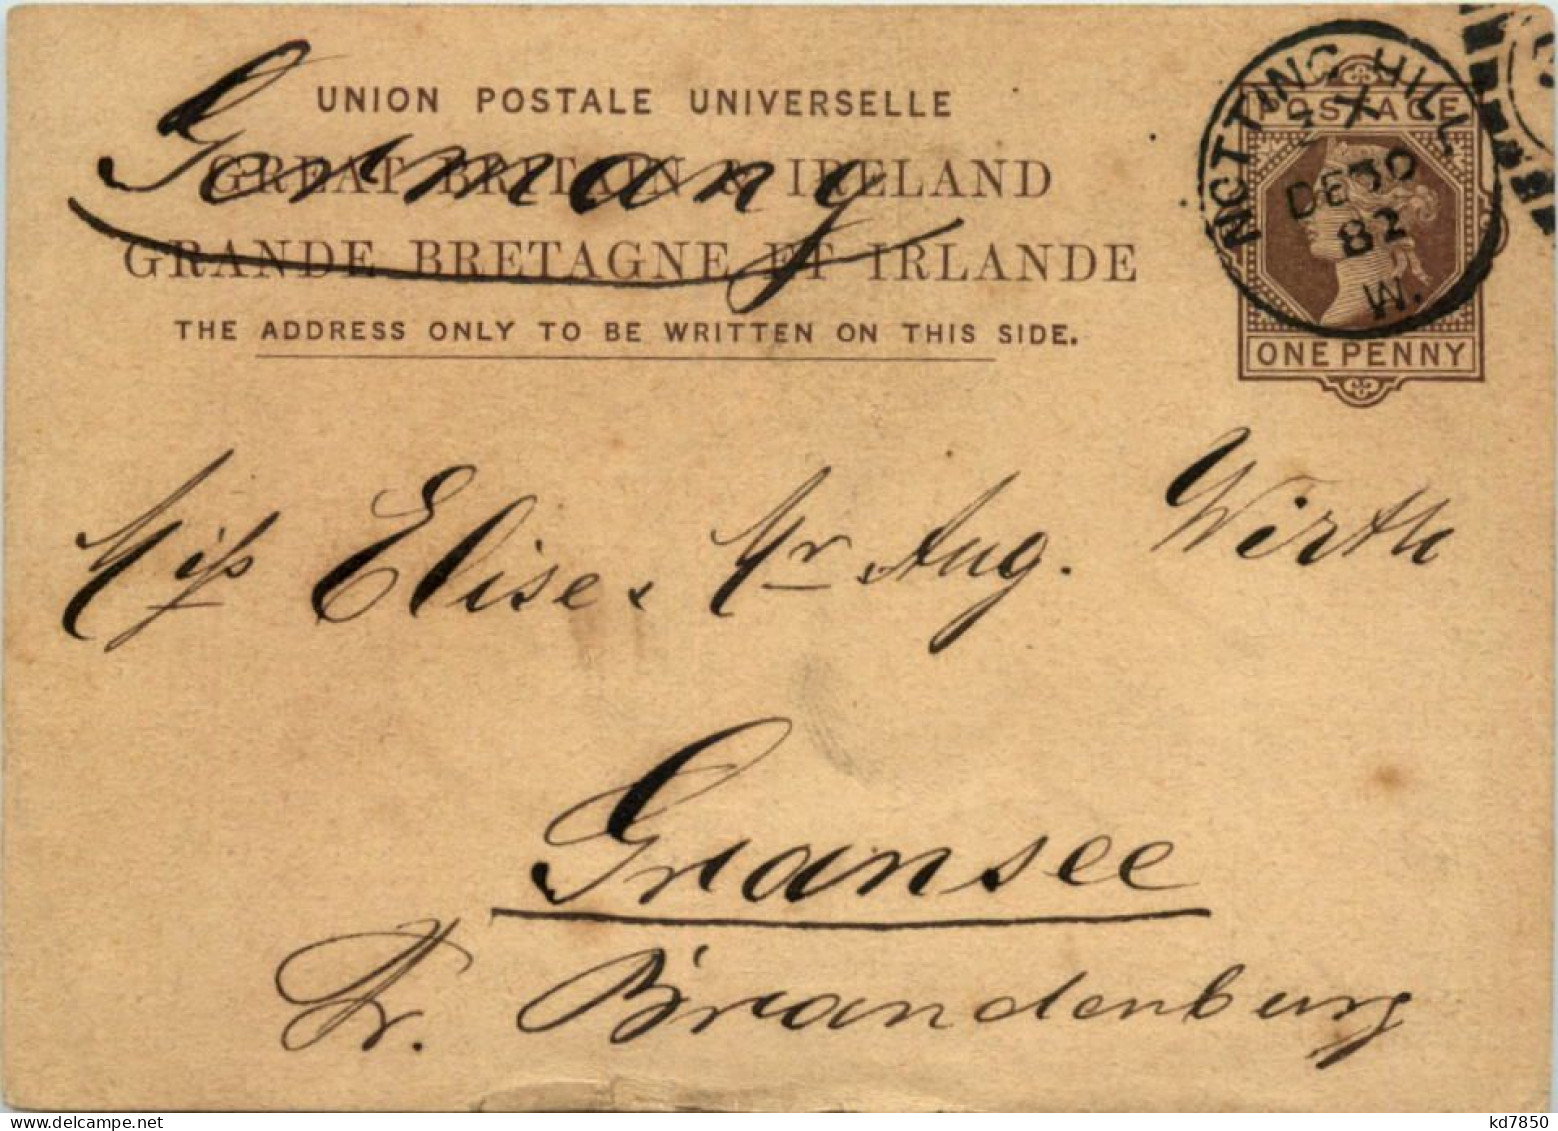 UNION POSTALE UNIVERSELLE
Germany
GREAT BRITAIN & IRELAND
GRANDE BRETAGNE ET IRLANDE
THE ADDRESS ONLY TO BE WRITTEN ON THIS SIDE.
POSTAGE
ONE PENNY
NOTTING HILL
X
DE 30
82
W.
Miss Elise. Mr Aug. Wirth
Gransee
Pr. Brandenburg
kd7850